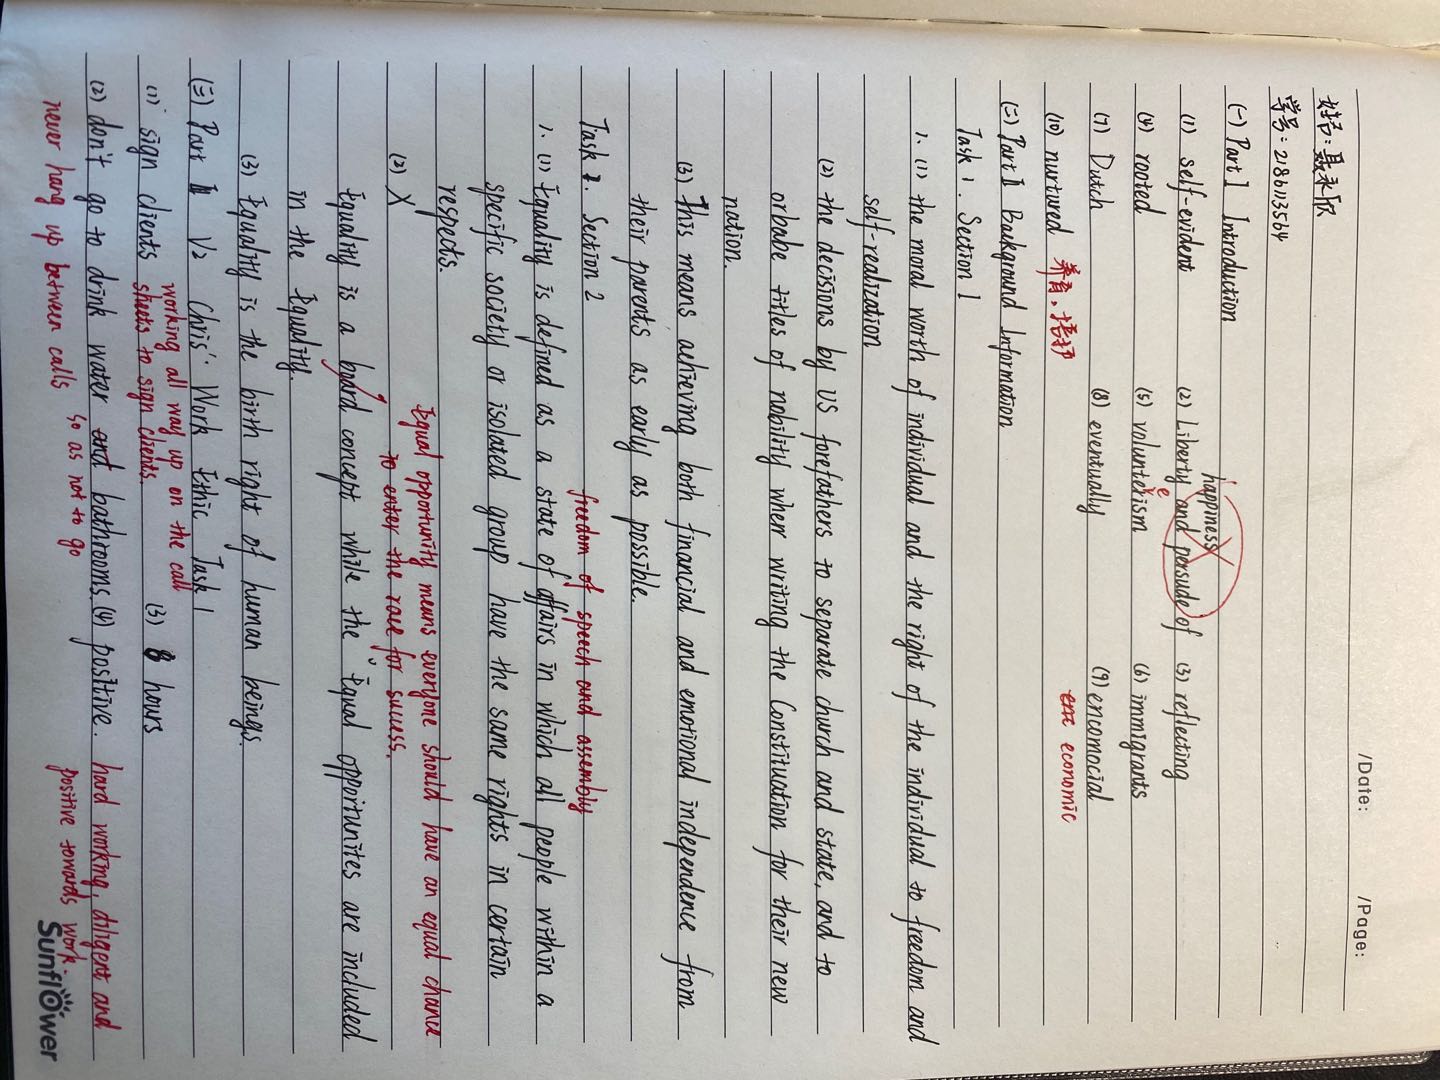 /Date: /Page:
姓名:聂永欣
学号:218113564
(一) Part I Introduction
happiness
(1) self-evident (2) Liberty and persude of (3) reflecting
e
(4) rooted (5) volunterism (6) immigrants
(7) Dutch (8) eventually (9) encomocial
(10) nurtured 养育,培护 economic
(二) Part II Background Information
Task 1. Section 1
1. (1) the moral worth of individual and the right of the individual to freedom and
self-realization
(2) the decisions by US forefathers to separate church and state, and to
orbabe titles of nobility when writing the Constituation for their new
nation.
(3) This means achieving both financial and emotional independence from
their parents as early as possible.
Task 2. Section 2 freedom of speech and assembly
1. (1) Equality is defined as a state of affairs in which all people within a
specific society or isolated group have the same rights in certain
respects.
Equal opportunity means everyone should have an equal chance
(2) X to enter the race for success.
Equality is a board concept while the "Equal opportunites are included
in the Equality.
(3) Equality is the birth right of human beings.
(三) Part III V2 Chris' Work Ethic Task 1
working all way up on the call
(1) sign clients sheets to sign clients. (3) 8 hours
(2) don't go to drink water and bathrooms. (4) positive. hard working, diligent and
never hang up between calls so as not to go positive towards work.
Sunflower